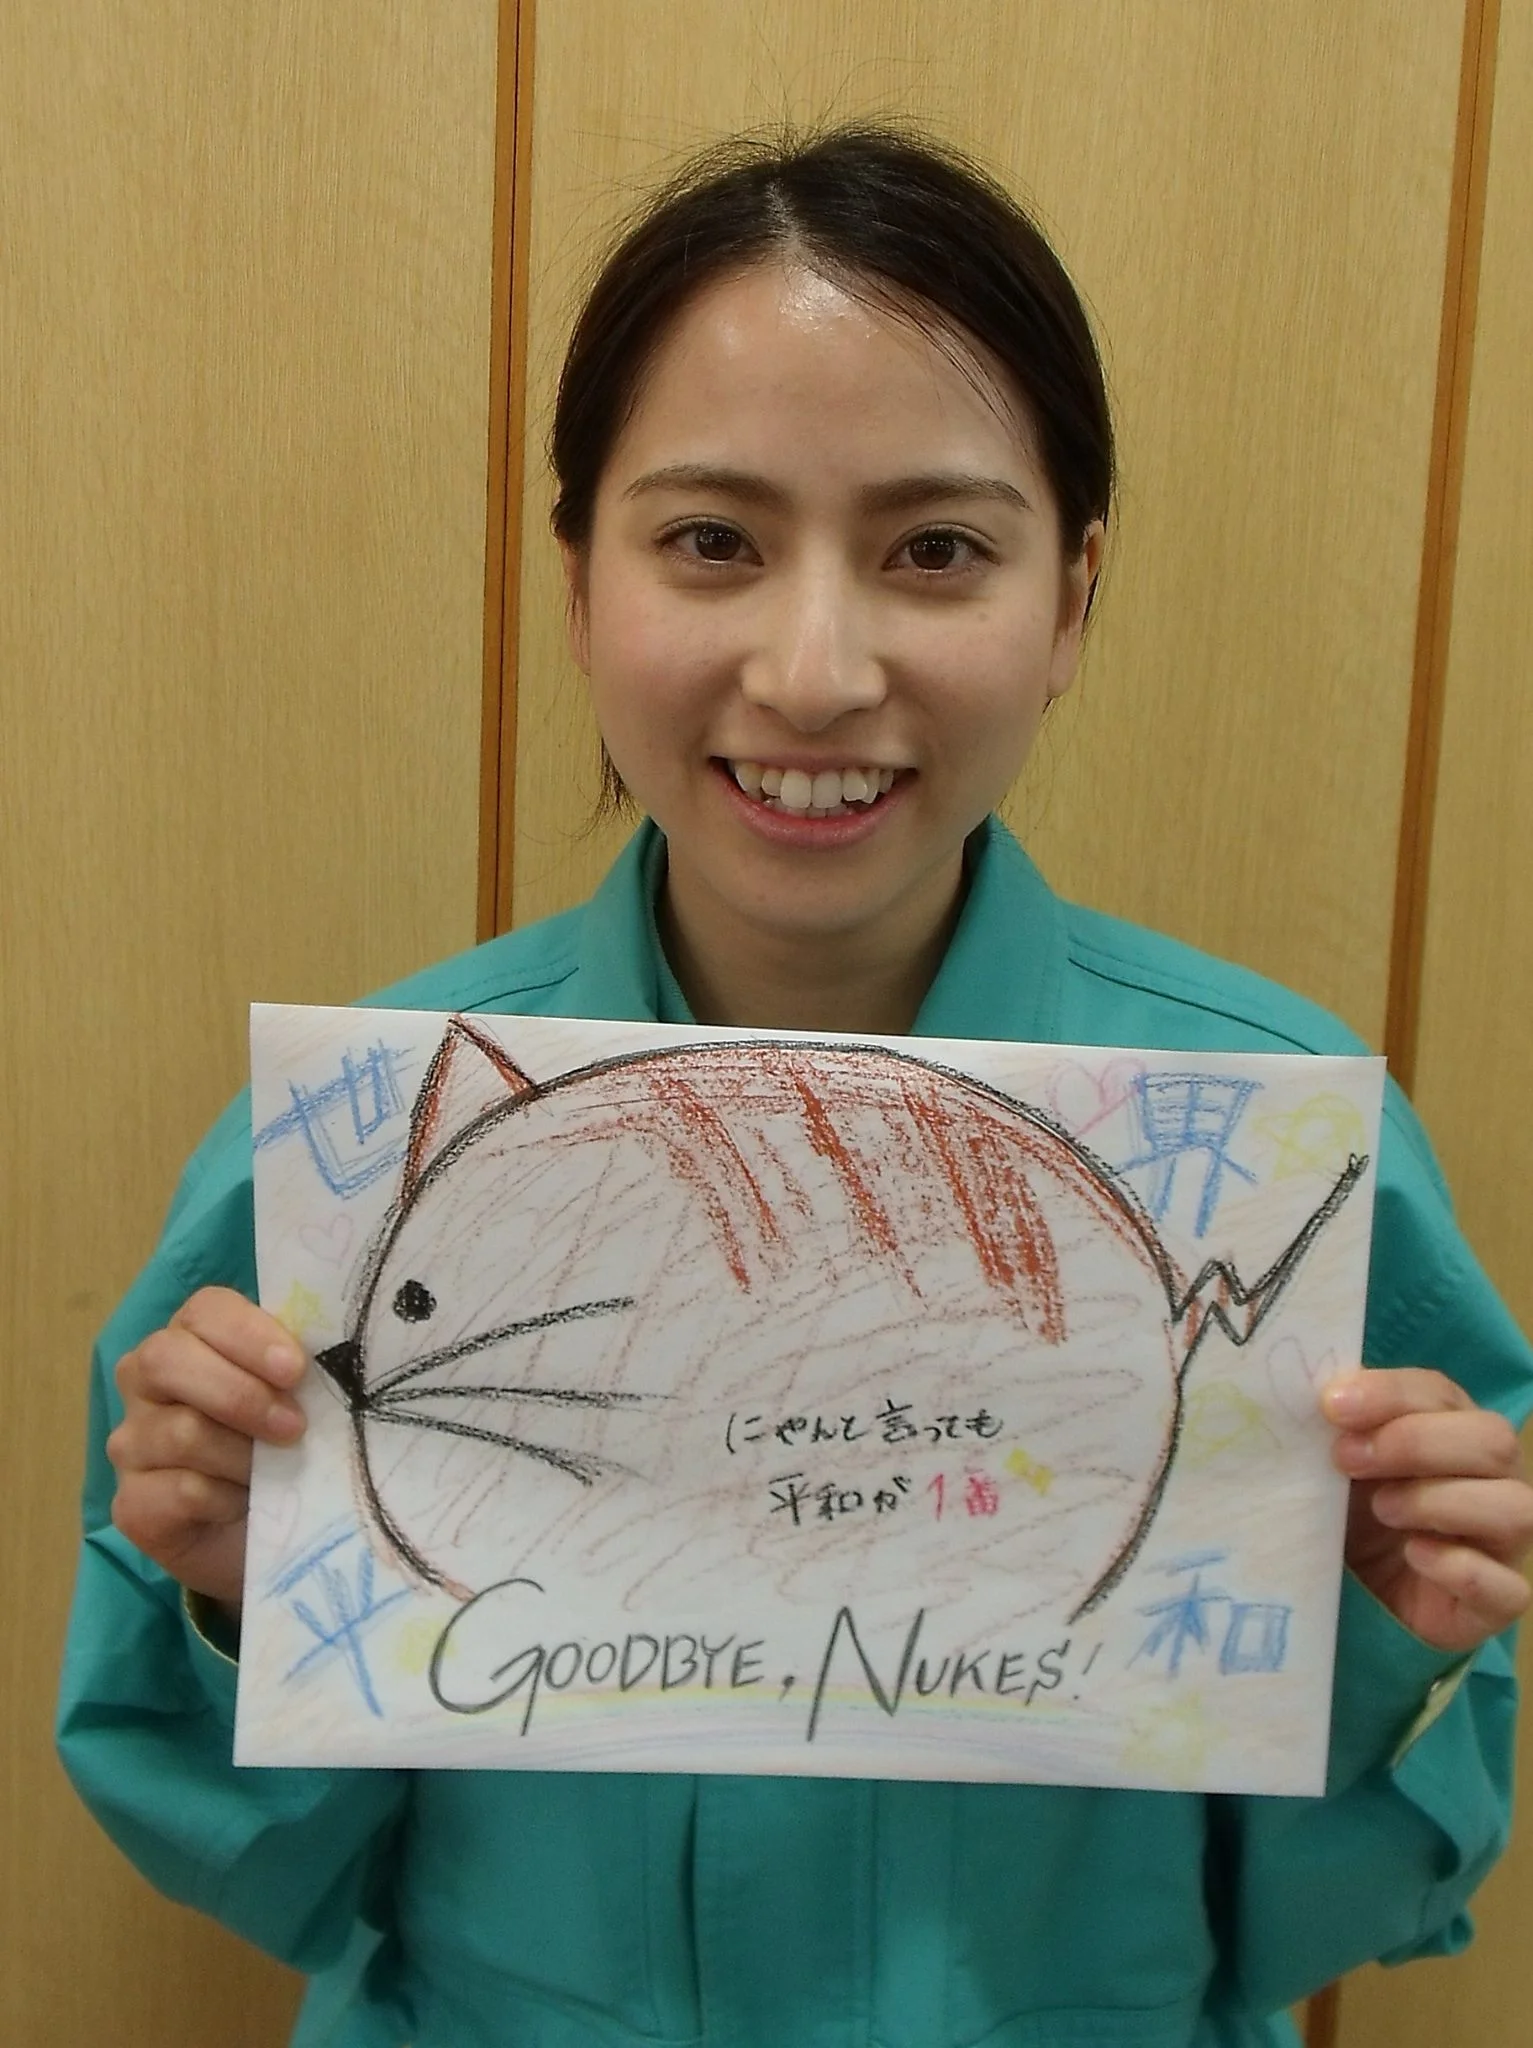 世界
にゃんと言っても
平和が1番
平和
GOODBYE, NUKES!